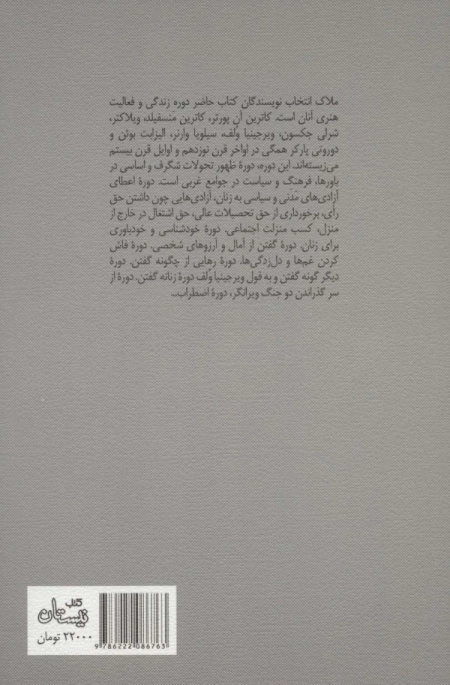 ملاک انتخاب نویسندگان کتاب حاضر دوره زندگی و فعالیت
هنری آنان است. کاترین آن پورتر، کاترین منسفیلد، ویلاکتر،
شرلی جکسون، ویرجینیا وُلف، سیلویا وارنر، الیزابت بوئن و
دوروتی پارکر همگی در اواخر قرن نوزدهم و اوایل قرن بیستم
می‌زیسته‌اند. این دوره، دورهٔ ظهور تحولات شگرف و اساسی در
باورها، فرهنگ و سیاست در جوامع غربی است. دورهٔ اعطای
آزادی‌های مَدَنی و سیاسی به زنان، آزادی‌هایی چون داشتن حق
رأی، برخورداری از حق تحصیلات عالی، حق اشتغال در خارج از
منزل، کسب منزلت اجتماعی. دورهٔ خودشناسی و خودباوری
برای زنان. دورهٔ گفتن از آمال و آرزوهای شخصی. دورهٔ فاش
کردن غم‌ها و دل‌زدگی‌ها. دورهٔ رهایی از چگونه گفتن. دورهٔ
دیگر گونه گفتن و به قول ویرجینیا وُلف دورهٔ زنانه گفتن. دورهٔ از
سر گذراندن دو جنگ ویرانگر، دورهٔ اضطراب...
کتاب
نیستان
۲۲۰۰۰ تومان
9 786222 086763